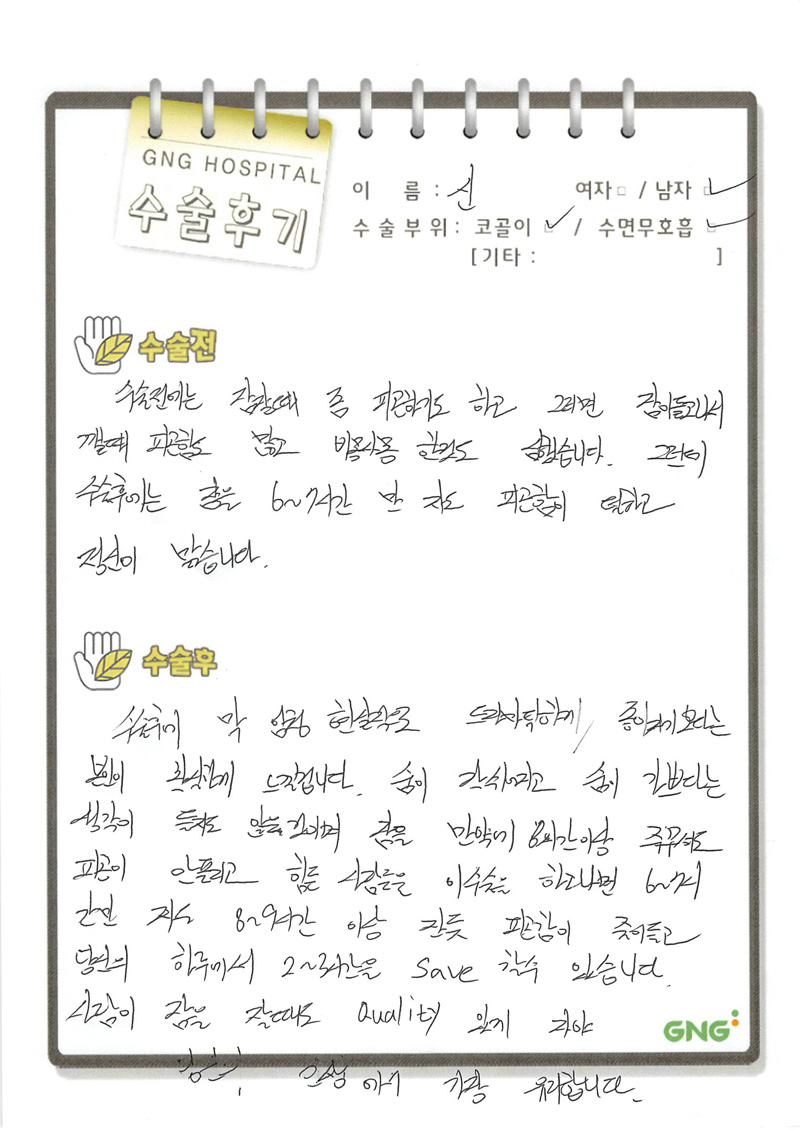 GNG HOSPITAL
수술후기
이 름 : 신 여자 □ / 남자 □
수술부위 : 코골이 □ / 수면무호흡 □
[기타 : ]
수술전
수술전에는 잠잘때 좀 피곤하기도 하고 그러면 잠이들고나서
깰때 피곤함도 많고 비몽사몽 한것도 했습니다. 그런데
수술후에는 잠을 6~7시간 만 자도 피곤함이 덜하고
정신이 맑습니다.
수술후
수술후에 막 엄청 현실적으로 드라마틱하게 좋아지기 보다는
본인이 확실하게 느낄겁니다. 숨이 막히고 숨이 가쁘다는
생각이 들지도 않을 것이며 잠을 만약에 8시간이상 주무셔도
피곤이 안풀리고 힘들 사람들은 이수술을 하고나면 6~7시
간만 자도 8~9시간 이상 잔듯 피곤함이 줄어들고
당신의 하루에서 2~3시간을 save 할수 있습니다.
사람이 잠을 잘때도 Quality 있게 자야
인생 에서 가장 유리합니다.
GNG